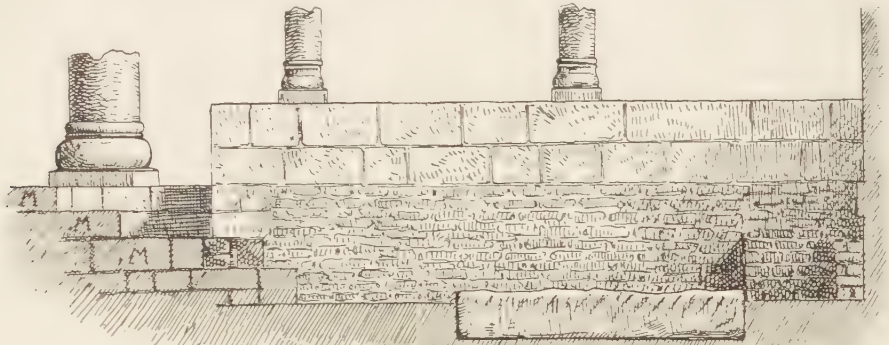 M
M
M